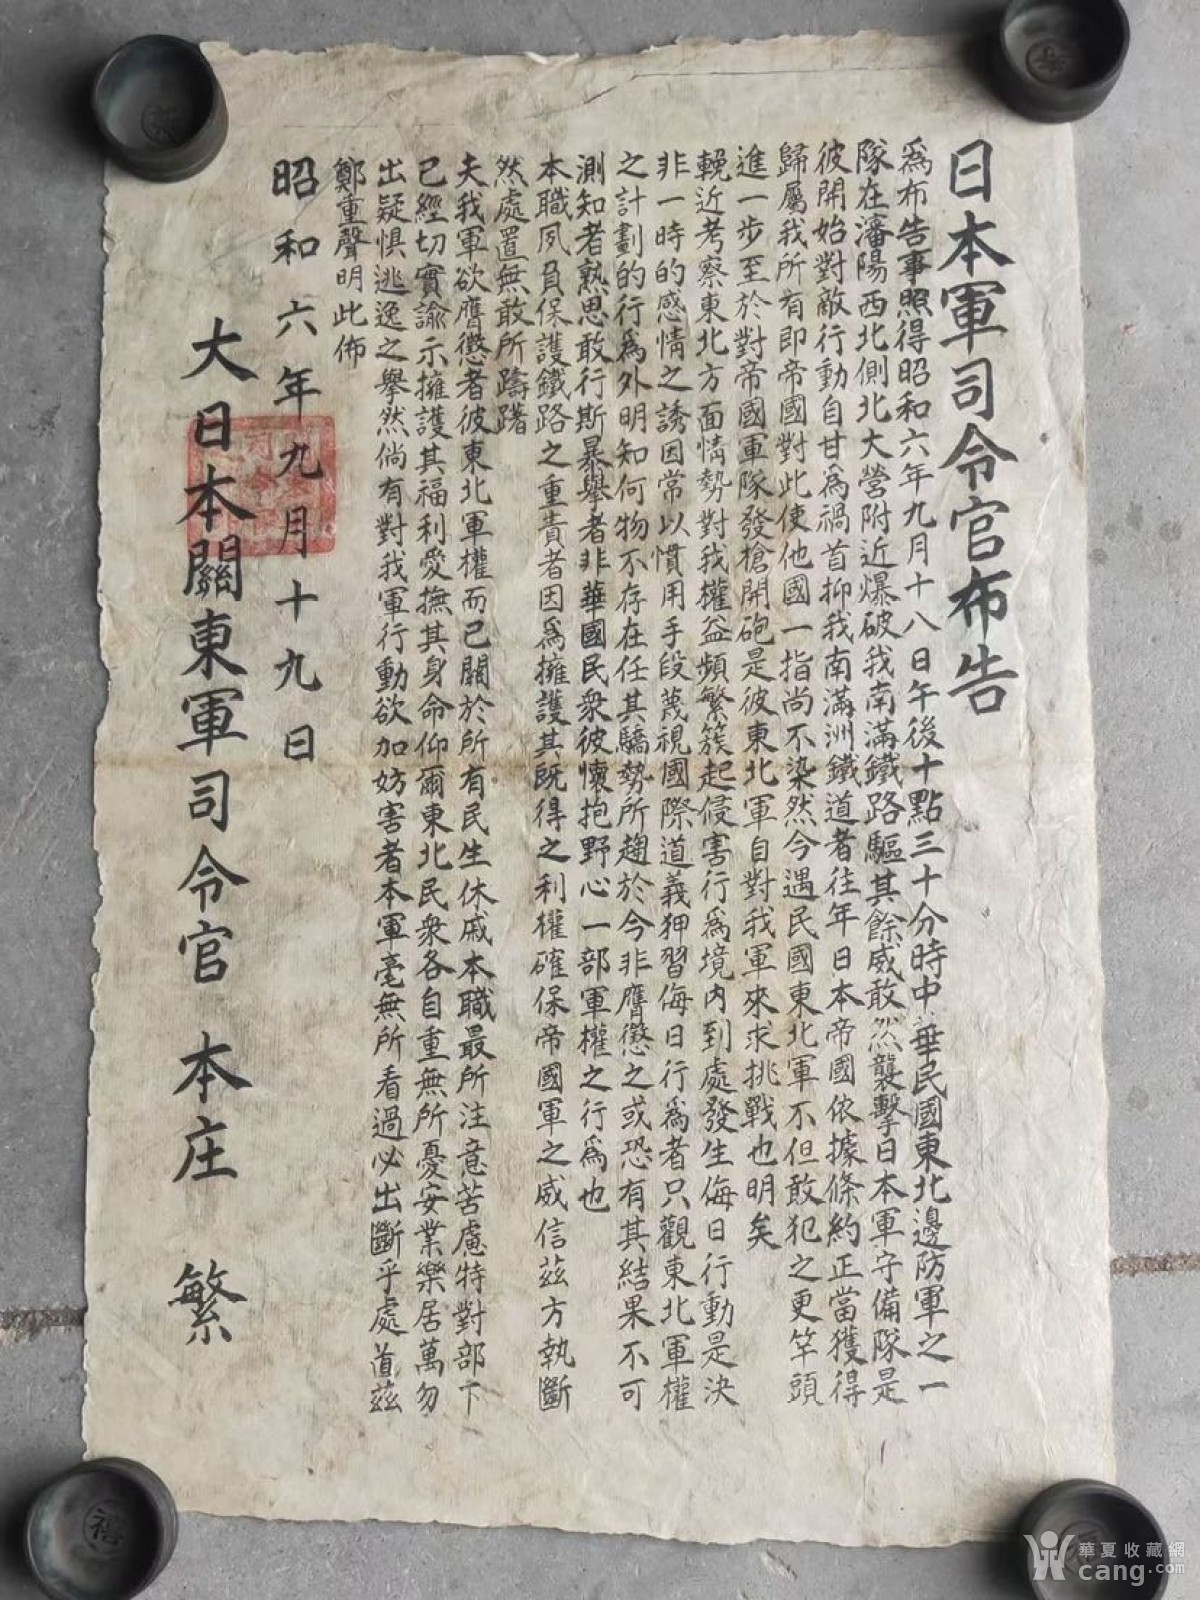 日本軍司令官布告
爲布告事照得昭和六年九月十八日午後十點三十分時中華民國東北邊防軍之一
隊在瀋陽西北側北大營附近爆破我南滿鐵路驅其餘威敢然襲擊日本軍守備隊是
彼開始對敵行動自甘爲禍首抑我南滿洲鐵道者往年日本帝國依據條約正當獲得
歸屬我所有即帝國對此使他國一指尚不染然今遇民國東北軍不但敢犯之更竿頭
進一步至於對帝國軍隊發槍開砲是彼東北軍自對我軍來求挑戰也明矣
輓近考察東北方面情勢對我權益頻繁簇起侵害行爲境内到處發生侮日行動是決
非一時的感情之誘因常以慣用手段蔑視國際道義狎習侮日行爲者只觀東北軍權
之計劃的行爲外明知何物不存在任其驕勢所趨於今非膺懲之或恐有其結果不可
測知者熟思敢行斯暴舉者非華國民衆彼懷抱野心一部軍權之行爲也
本職夙負保護鐵路之重責者因爲擁護其既得之利權確保帝國軍之威信茲方執斷
然處置無敢所躊躇
夫我軍欲膺懲者彼東北軍權而已關於所有民生休戚本職最所注意苦慮特對部下
已經切實諭示擁護其福利愛撫其身命仰爾東北民衆各自重無所憂安業樂居萬勿
出疑惧逃逸之舉然倘有對我軍行動欲加妨害者本軍毫無所看過必出斷乎處置茲
鄭重聲明此佈
昭和六年九月十九日
大日本關東軍司令官 本庄 繁
華夏收藏網
cang.com